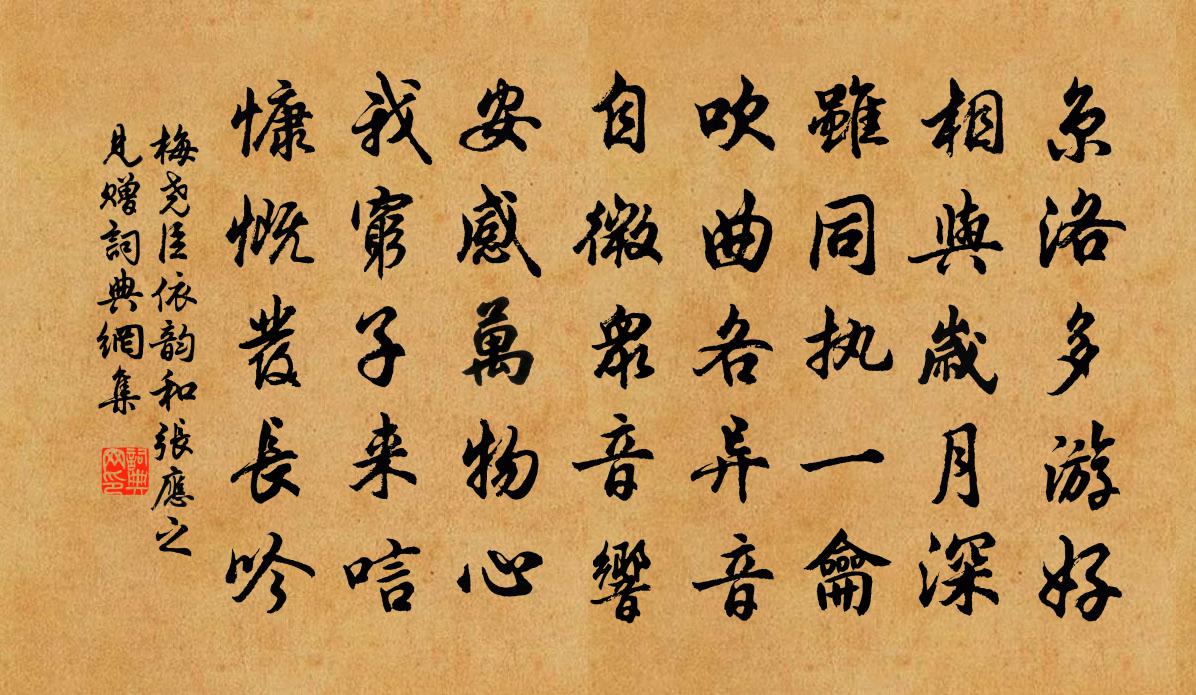 京洛多游好
相與歲月深
雖同执一龠
吹曲各异音
自微眾音響
安感萬物心
我窮子来唁
慷慨发長吟
梅尧臣依韵和張應之
見赠詞典網集
詞典网印